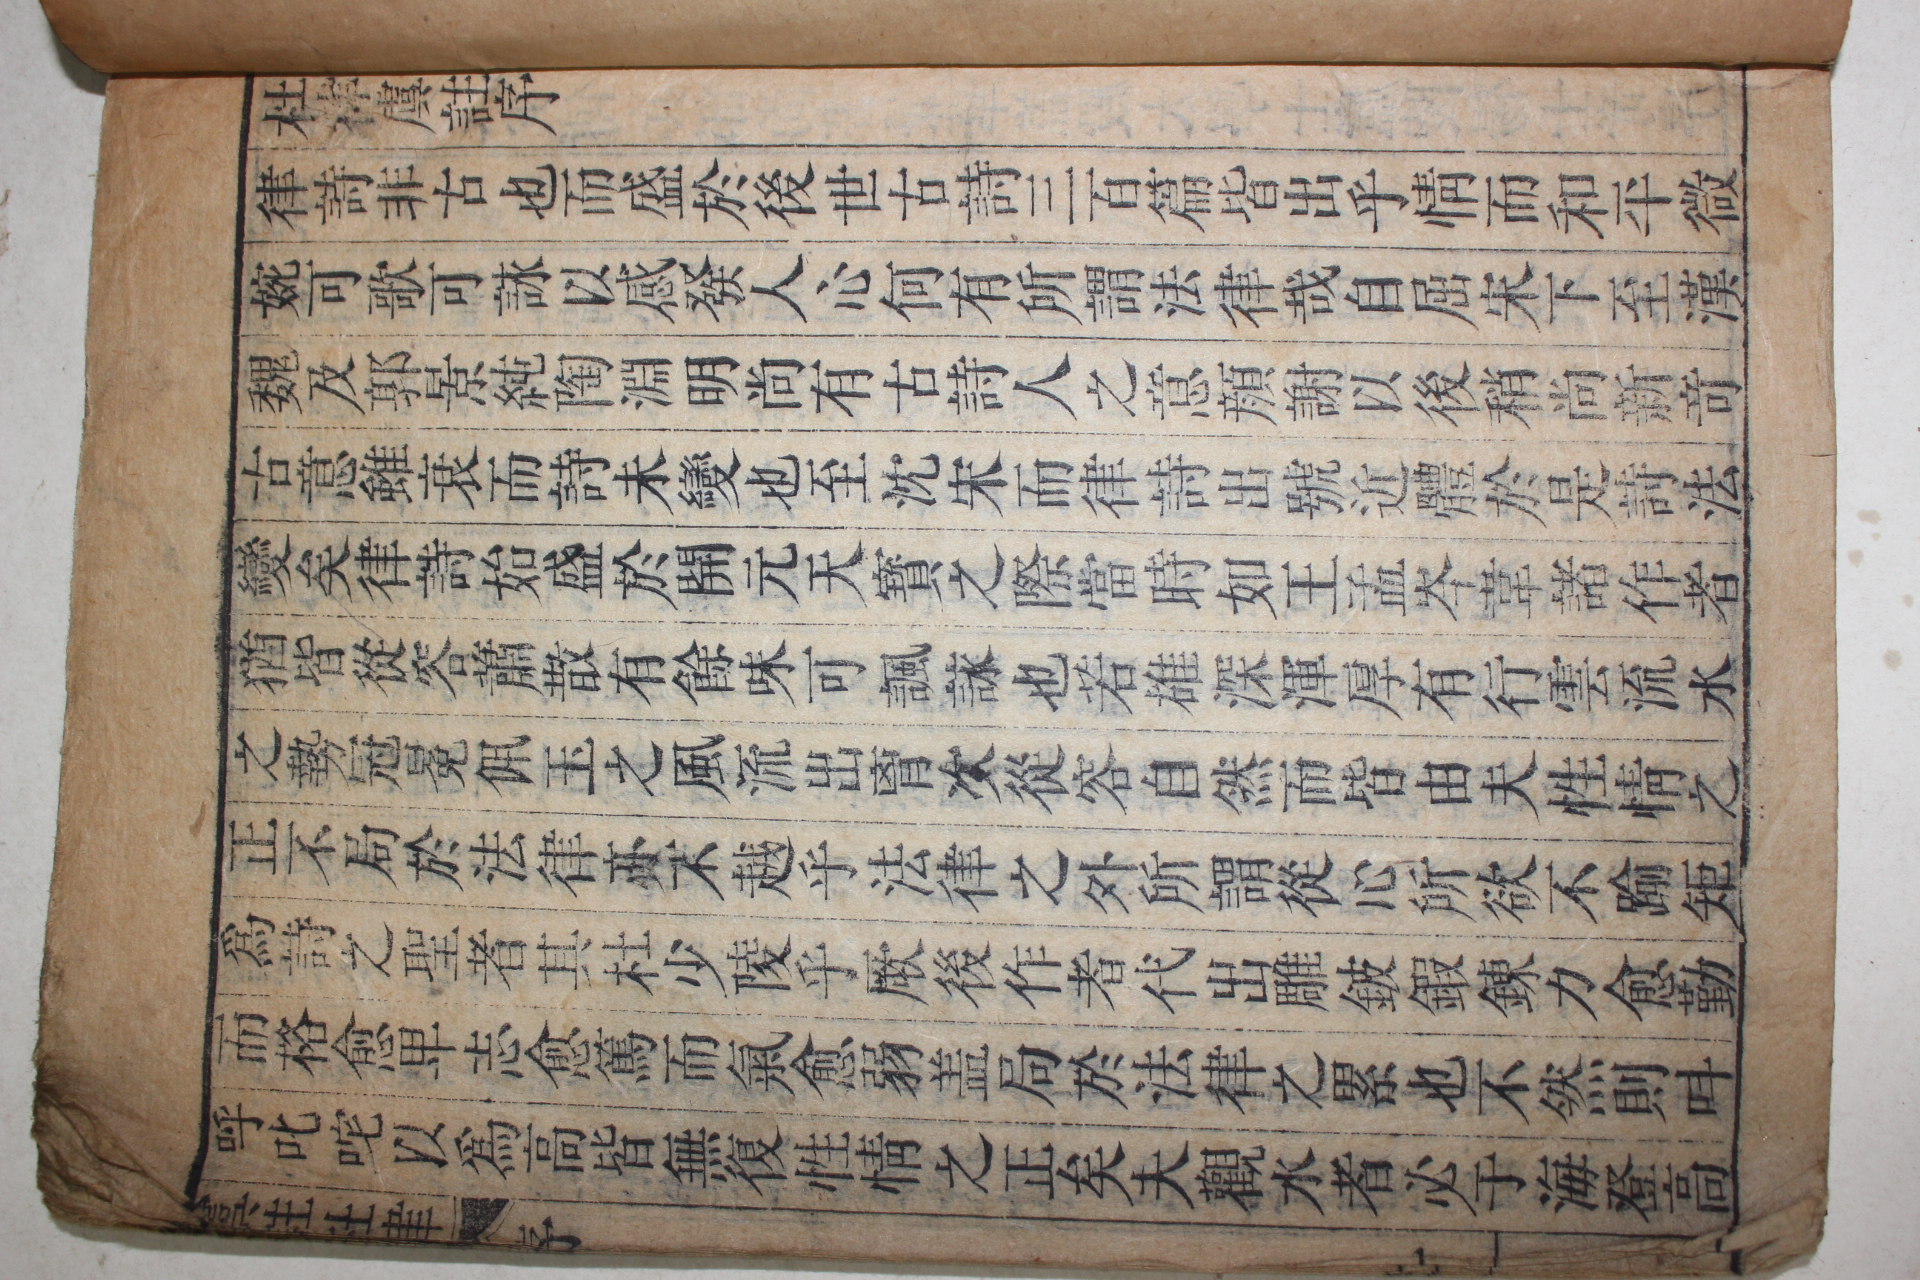 杜律虞註序
律詩非古也而盛於後世古詩三百篇皆出乎情而和平微
婉可歌可詠以感發人心何有所謂法律哉自屈宋下至漢
魏及郭景純陶淵明尚有古詩人之意顔謝以後稍尚新奇
古意雖衰而詩未變也至沈宋而律詩出號近體於是詩法
變矣律詩始盛於開元天寶之際當時如王孟岑韋諸作者
猶皆從容蕭散有餘味可諷詠也若雄深渾厚有行雲流水
之勢冠冕佩玉之風流出胷次從容自然而皆由夫性情之
正不局於法律亦不越乎法律之外所謂從心所欲不踰矩
爲詩之聖者其杜少陵乎厥後作者代出雕鈹鍜鍊力愈勤
而格愈卑志愈篤而氣愈弱盖局於法律之累也不然則呌
呼叱咤以爲高皆無復性情之正矣夫觀水者必于海登高
虞註杜律 序